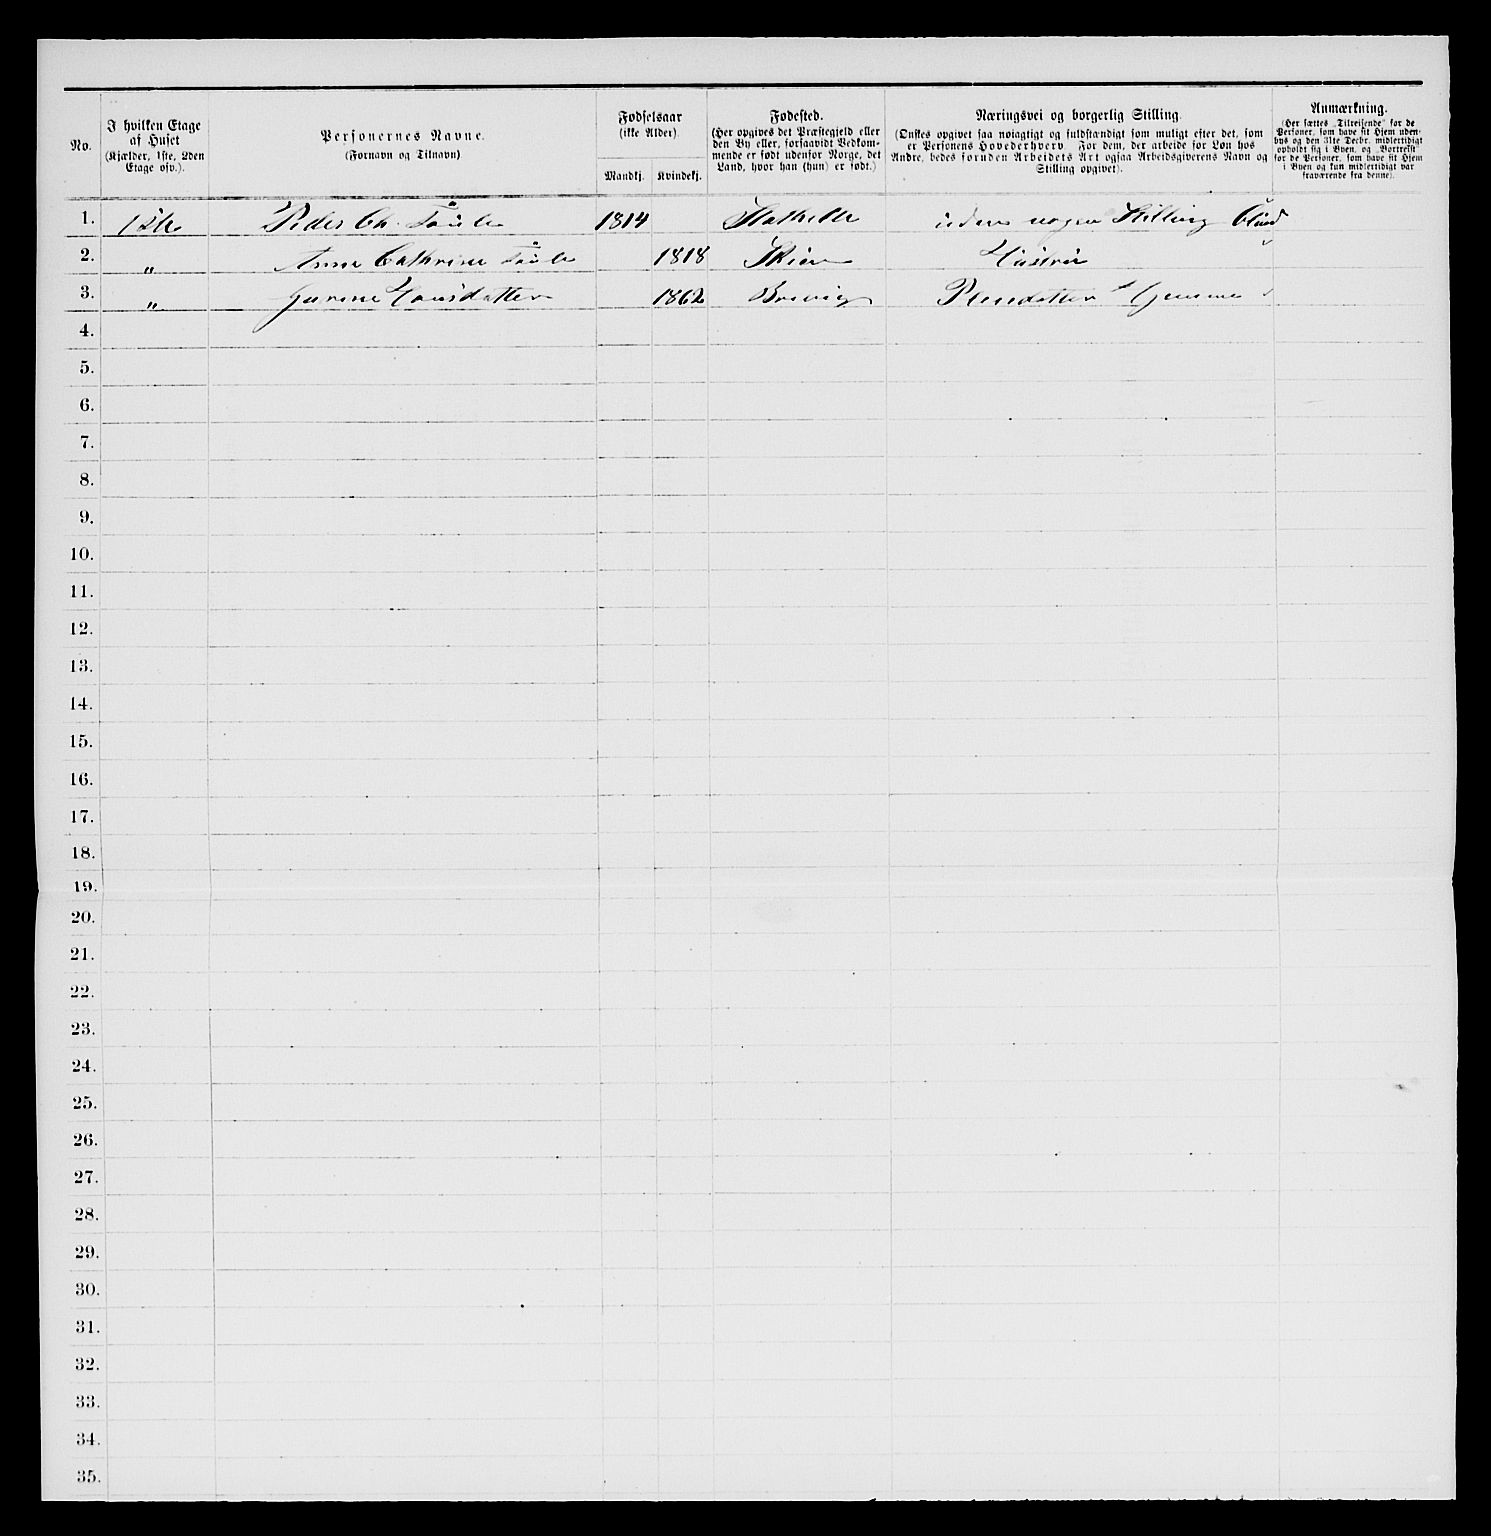 No.
I hvilken Etage af Huset (Kjælder, 1ste, 2den Etage osv.).
Personernes Navne. (Fornavn og Tilnavn)
Fødselsaar (ikke Alder)
Mandkj. Kvindekj.
Fødested. (Her opgives det Præstegjeld eller den By eller, forsaavidt Vedkommende er født udenfor Norge, det Land, hvor han (hun) er født.)
Næringsvei og borgerlig Stilling. (Ønskes opgivet saa nøiagtigt og fuldstændigt som muligt efter det, som er Personens Hovederhverv. For dem, der arbeide for Løn hos Andre, bedes foruden Arbeidets Art ogsaa Arbeidsgiverens Navn og Stilling opgivet).
Anmærkning. (Her sættes „Tilreisende" for de Personer, som have sit Hjem udenbys og den 31te Decbr. midlertidigt opholdt sig i Byen, og „Bortreist" for de Personer, som have sit Hjem i Byen og kun midlertidigt var fraværende fra denne).
1. 1ste Peder Ch. 1814 Stathelle uden nogen Stilling blind
2. „ Anne Cathrine 1818 Skien Hustru
3. „ Hansdatter 1862 Brevig Pleiedatter Hjemme
4.
5.
6.
7.
8.
9.
10.
11.
12.
13.
14.
15.
16.
17.
18.
19.
20.
21.
22.
23.
24.
25.
26.
27.
28.
29.
30.
31.
32.
33.
34.
35.